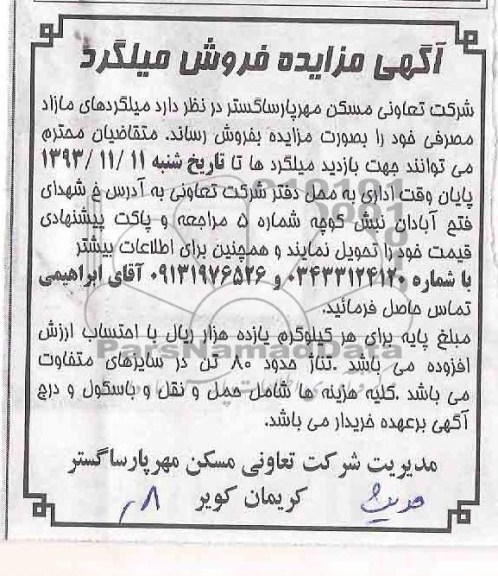 آگهی مزایده فروش میلگرد
شرکت تعاونی مسکن مهرپارساگستر در نظر دارد میلگردهای مازاد
مصرفی خود را بصورت مزایده بفروش رساند. متقاضیان محترم
می توانند جهت بازدید میلگرد ها تا تاریخ شنبه ۱۳۹۳/۱۱/۱۱
پایان وقت اداری به محل دفتر شرکت تعاونی به آدرس خ شهدای
فتح آبادان نبش کوچه شماره ۵ مراجعه و پاکت پیشنهادی
قیمت خود را تحویل نمایند و همچنین برای اطلاعات بیشتر
با شماره ۰۳۴۳۳۱۲۴۱۲۰ و ۰۹۱۳۱۹۷۶۵۲۶ آقای ابراهیمی
تماس حاصل فرمائید.
مبلغ پایه برای هر کیلوگرم یازده هزار ریال با احتساب ارزش
افزوده می باشد .تناژ حدود ۸۰ تن در سایزهای متفاوت
می باشد .کلیه هزینه ها شامل حمل و نقل و باسکول و درج
آگهی برعهده خریدار می باشد.
مدیریت شرکت تعاونی مسکن مهرپارساگستر
کریمان کویر
ParsNamadData